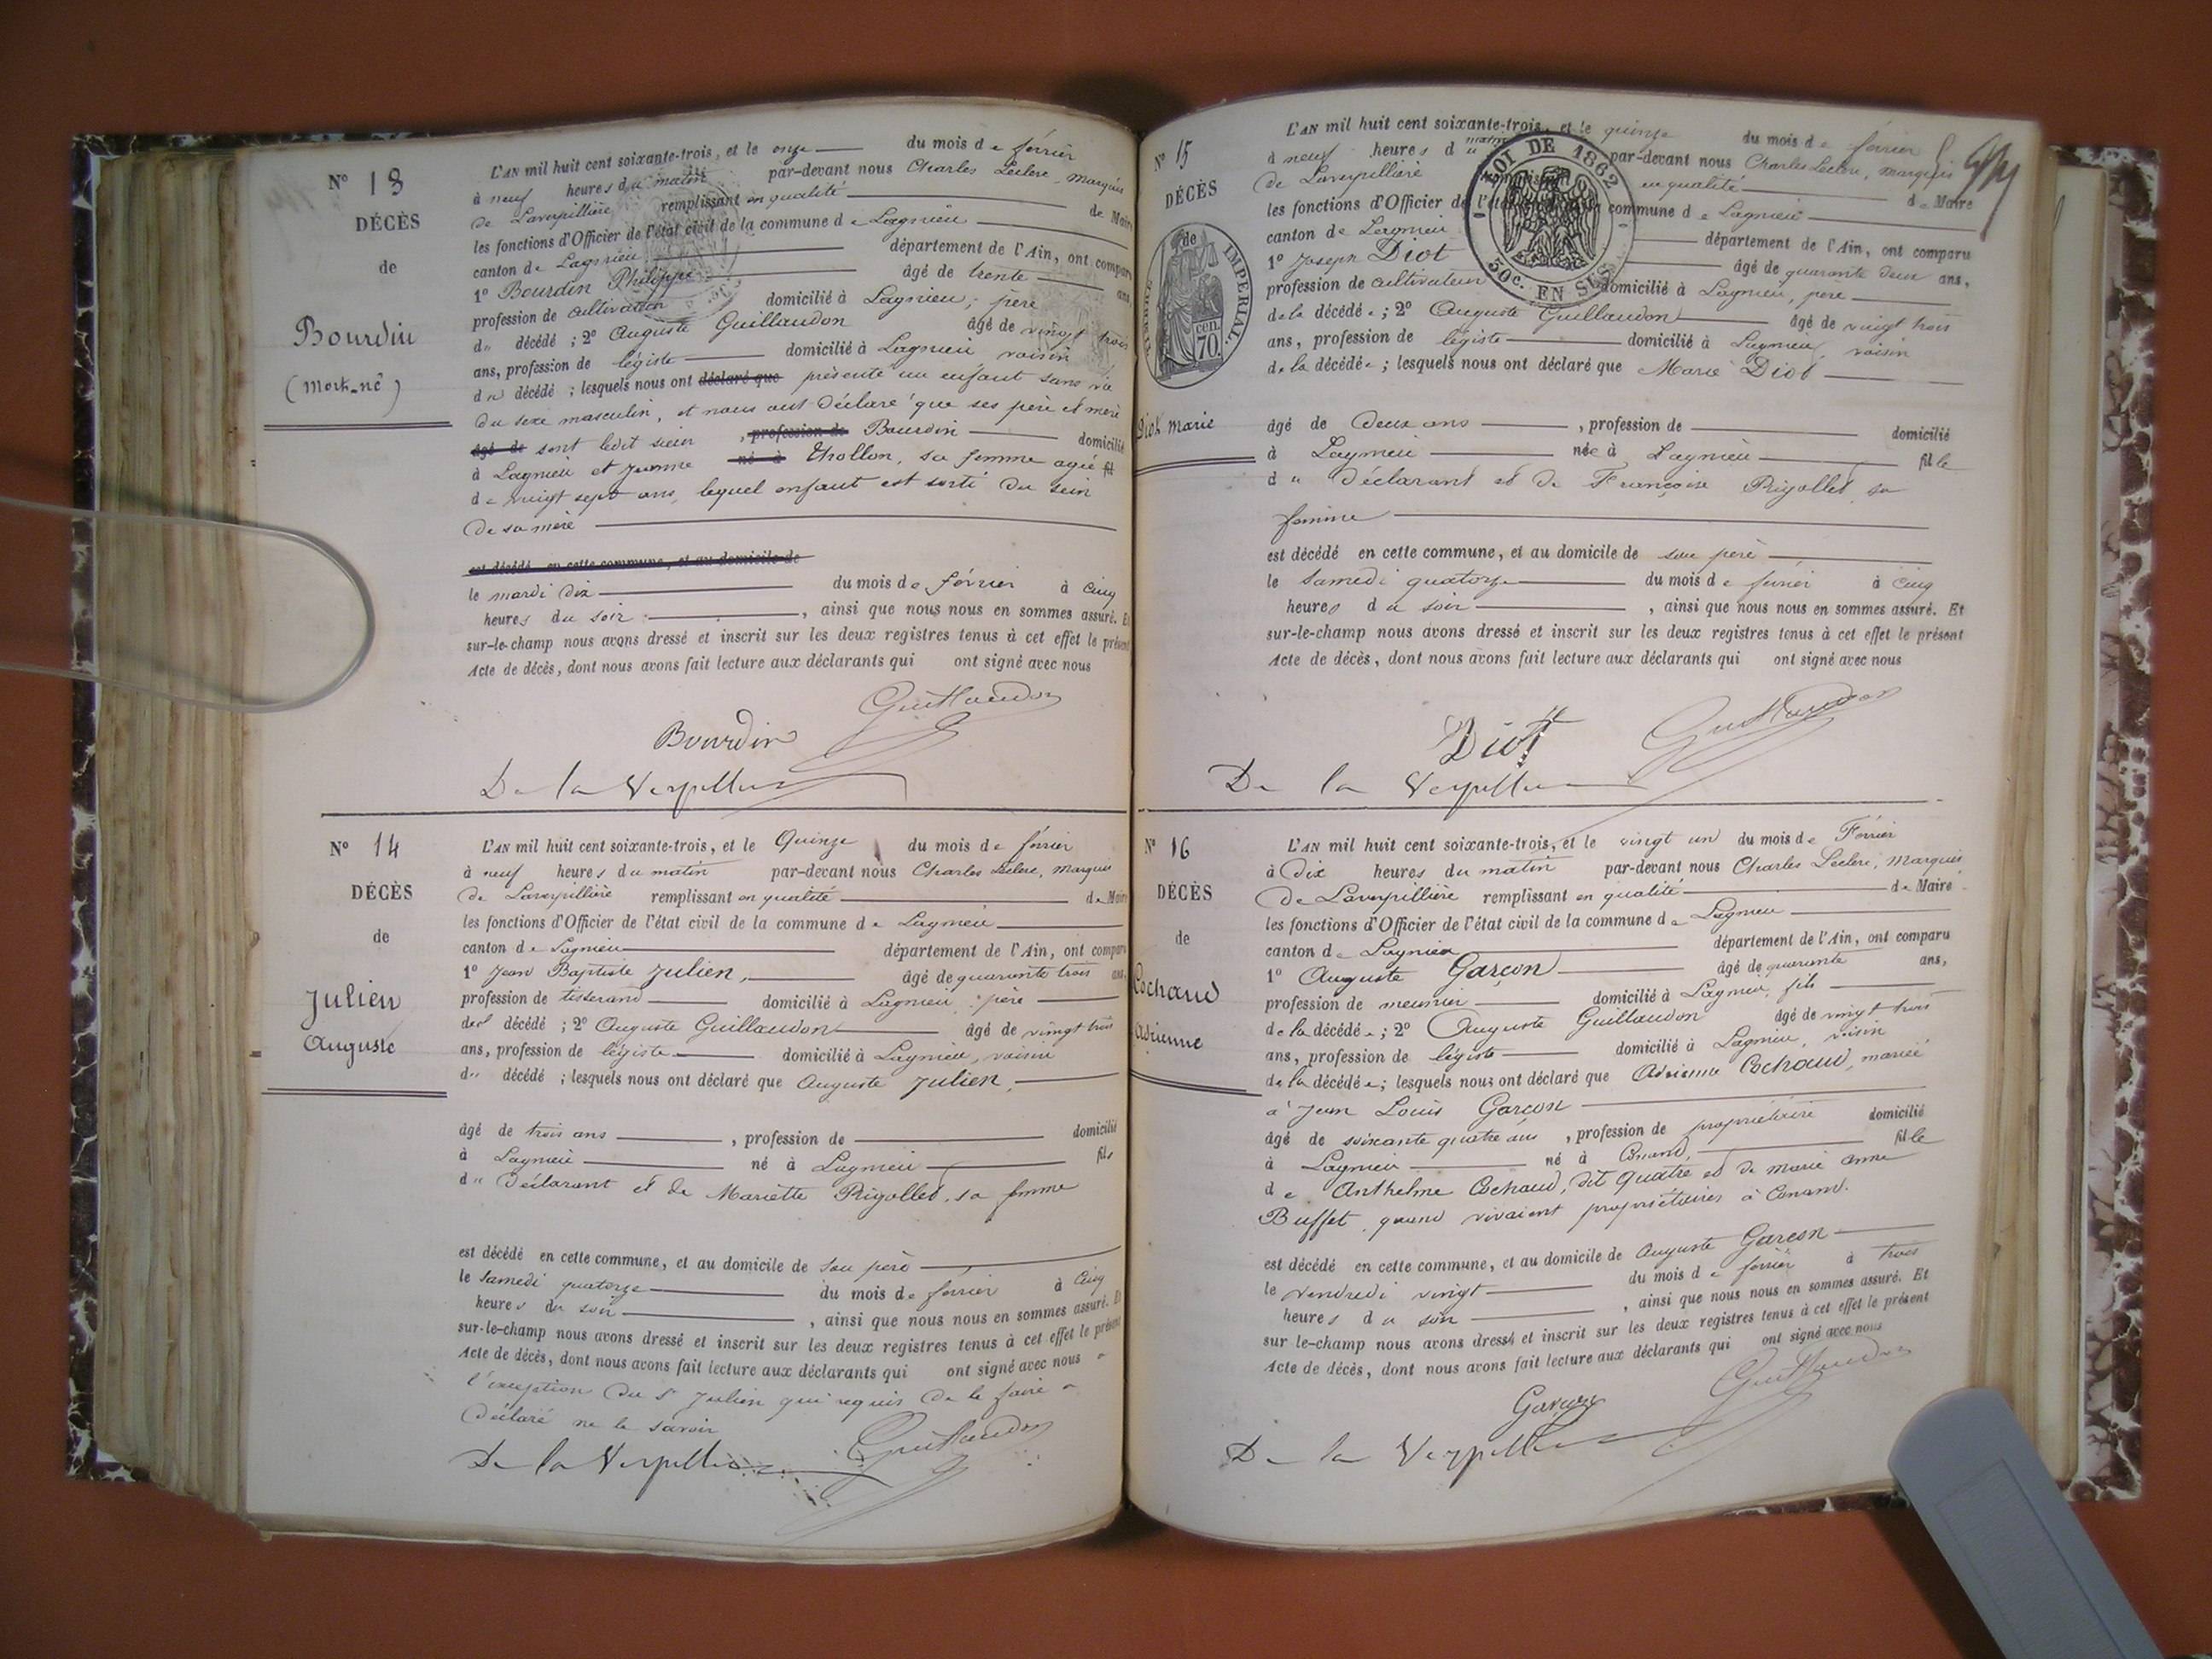 N° 13
DÉCÈS
de
Bourdin
(mort-né)
L'AN mil huit cent soixante-trois, et le onze du mois de février
à neuf heures du matin par-devant nous Charles Leclerc, Marquis
de Laverpillière remplissant en qualité de Maire
les fonctions d'Officier de l'état civil de la commune de Lagnieu
canton de Lagnieu département de l'Ain, ont comparu
1° Bourdin Philippe âgé de trente ans,
profession de cultivateur domicilié à Lagnieu, père
du décédé ; 2° Auguste Guillaudon âgé de vingt trois
ans, profession de légiste domicilié à Lagnieu, voisin
du décédé ; lesquels nous ont déclaré que présenté un enfant sans vie
du sexe masculin, et nous ont déclaré que ses père et mère
âgé de sont ledit sieur , profession de Bourdin domicilié
à Lagnieu et Jeanne né à Thollon, sa femme agée fil
de vingt sept ans, lequel enfant est sorti du sein
de sa mère
est décédé en cette commune, et au domicile de
le mardi dix du mois de février à cinq
heures du soir, ainsi que nous nous en sommes assuré. Et
sur-le-champ nous avons dressé et inscrit sur les deux registres tenus à cet effet le présent
Acte de décès, dont nous avons fait lecture aux déclarants qui ont signé avec nous
Guillaudon
Bourdin
De la Verpillière
N° 14
DÉCÈS
de
Julien
Auguste
L'AN mil huit cent soixante-trois, et le Quinze du mois de février
à neuf heures du matin par-devant nous Charles Leclerc, Marquis
de Laverpillière remplissant en qualité de Maire
les fonctions d'Officier de l'état civil de la commune de Lagnieu
canton de Lagnieu département de l'Ain, ont comparu
1° Jean Baptiste Julien, âgé de quarante trois ans,
profession de tisserand domicilié à Lagnieu, père
du décédé ; 2° Auguste Guillaudon âgé de vingt trois
ans, profession de légiste domicilié à Lagnieu, voisin
du décédé ; lesquels nous ont déclaré que Auguste Julien,
âgé de trois ans , profession de domicilié
à Lagnieu né à Lagnieu fils
du déclarant et de Mariette Rigollet, sa femme
est décédé en cette commune, et au domicile de son père
le samedi quatorze du mois de février à cinq
heures du soir , ainsi que nous nous en sommes assuré. Et
sur-le-champ nous avons dressé et inscrit sur les deux registres tenus à cet effet le présent
Acte de décès, dont nous avons fait lecture aux déclarants qui ont signé avec nous à
l'exception du Sr Julien qui requis de le faire a
déclaré ne le savoir
Guillaudon
De la Verpillière
N° 15
DÉCÈS
de
TIMBRE IMPÉRIAL
70 cen.
Diot Marie
LOI DE 1862
50c. EN SUS
L'AN mil huit cent soixante-trois, et le quinze du mois de février
à neuf heures du matin par-devant nous Charles Leclerc, marquis
de Laverpillière remplissant en qualité de Maire
les fonctions d'Officier de l'état civil de la commune de Lagnieu
canton de Lagnieu département de l'Ain, ont comparu
1° Joseph Diot âgé de quarante deux ans,
profession de cultivateur domicilié à Lagnieu, père
de la décédée ; 2° Auguste Guillaudon âgé de vingt trois
ans, profession de légiste domicilié à Lagnieu, voisin
de la décédée ; lesquels nous ont déclaré que Marie Diot
âgé de deux ans , profession de domicilié
à Lagnieu née à Lagnieu fille
du déclarant et de Françoise Rigollet sa
femme
est décédé en cette commune, et au domicile de son père
le samedi quatorze du mois de février à cinq
heures du soir , ainsi que nous nous en sommes assuré. Et
sur-le-champ nous avons dressé et inscrit sur les deux registres tenus à cet effet le présent
Acte de décès, dont nous avons fait lecture aux déclarants qui ont signé avec nous
Diot Guillaudon
De la Verpillière
N° 16
DÉCÈS
de
Cochaud
Adrienne
L'AN mil huit cent soixante-trois, et le vingt un du mois de Février
à Dix heures du matin par-devant nous Charles Leclerc, Marquis
De Laverpillière remplissant en qualité de Maire
les fonctions d'Officier de l'état civil de la commune de Lagnieu
canton de Lagnieu département de l'Ain, ont comparu
1° Auguste Garçon âgé de quarante ans,
profession de meunier domicilié à Lagnieu, fils
de la décédée ; 2° Auguste Guillaudon âgé de vingt trois
ans, profession de légiste domicilié à Lagnieu, voisin
de la décédée ; lesquels nous ont déclaré que Adrienne Cochaud, mariée
à Jean Louis Garçon
âgé de soixante quatre ans , profession de propriétaire domicilié
à Lagnieu né à Conand, fille
de Anthelme Cochaud, dit Quatre et de marie anne
Buffet, quand vivaient propriétaires à Conand.
est décédé en cette commune, et au domicile de Auguste Garçon
le vendredi vingt du mois de février à trois
heures du soir , ainsi que nous nous en sommes assuré. Et
sur le-champ nous avons dressé et inscrit sur les deux registres tenus à cet effet le présent
Acte de décès, dont nous avons fait lecture aux déclarants qui ont signé avec nous
Garçon Guillaudon
De la Verpillière